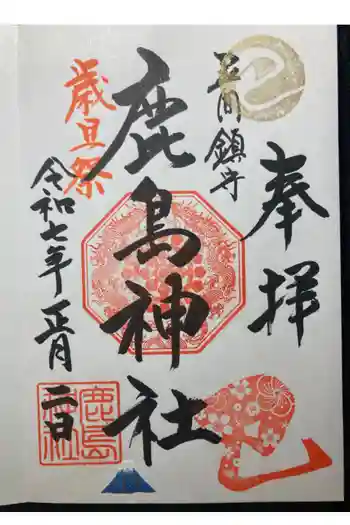 奉拝
鎮守
鹿島神社
歳旦祭
令和七年正月二日
鹿島
神社